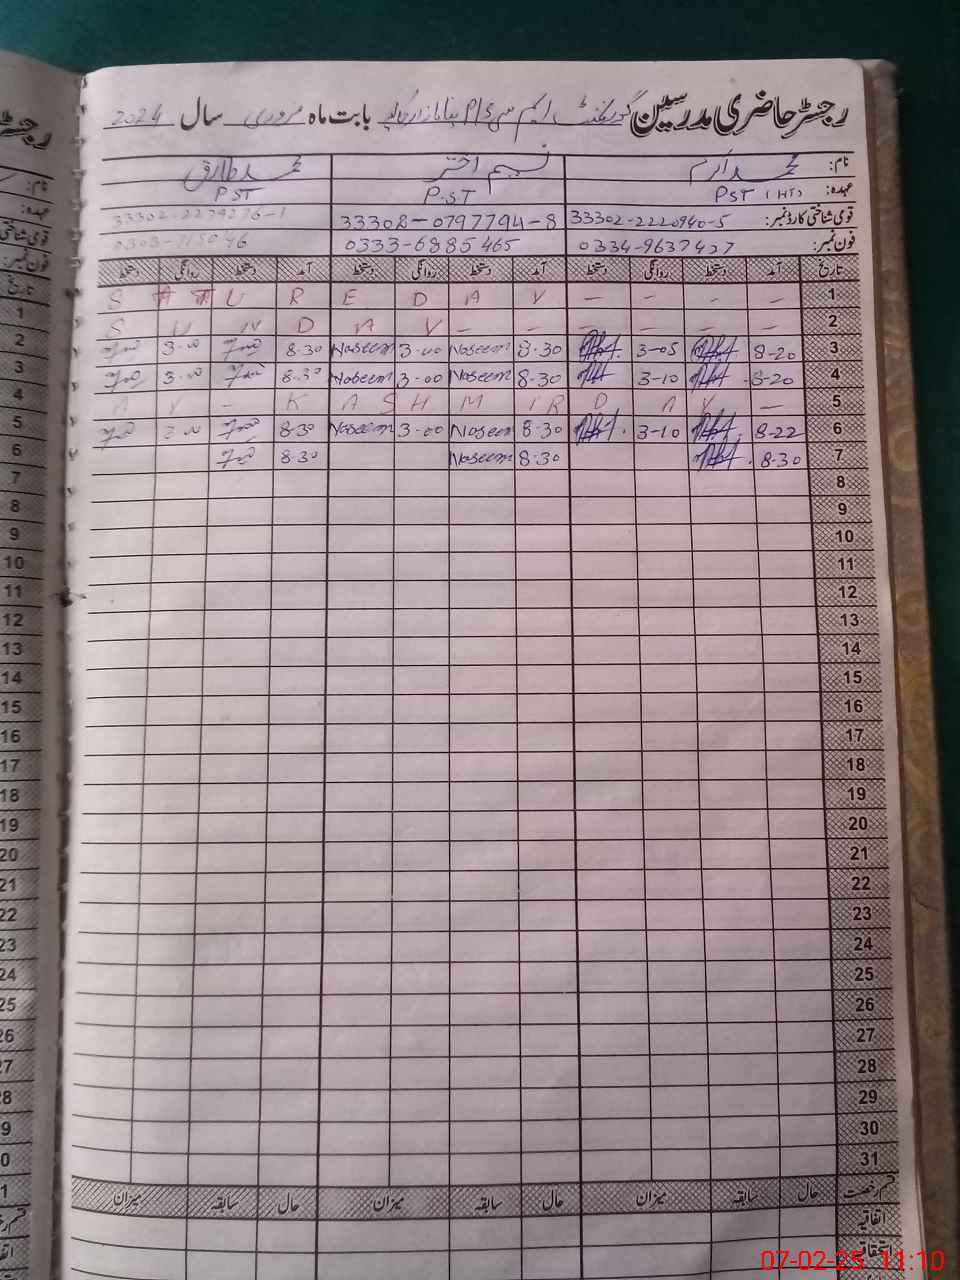 رجسٹر حاضری مدرسین گورنمنٹ ایم سی پرا بابت ماہ فروری سال 2024
نام: محمد اکرم نسیم اختر محمد طارق
عہدہ: PST (HT) P.ST PST
قومی شناختی کارڈ نمبر: 33302-2220940-5 33308-0797794-8 33302-2279276-1
فون نمبر: 0334-9637437 0333-6885465
تاریخ آمد دستخط روانگی دستخط آمد دستخط روانگی دستخط آمد دستخط روانگی دستخط
S A T U R E D A Y — — — — 1
S U N D A Y — — — — — 2
3-00 8-30 Naseem 3-00 Naseem 8-30 3-05 8-20 3
3-00 8-30 Naseem 3-00 Naseem 8-30 3-10 8-20 4
A Y - K A S H M IR D A Y — 5
3-00 8-30 Naseem 3-00 Naseem 8-30 3-10 8-22 6
8-30 Naseem 8-30 8-30 7
8
9
10
11
12
13
14
15
16
17
18
19
20
21
22
23
24
25
26
27
28
29
30
31
قسم رخصت حال سابقہ میزان حال سابقہ میزان حال سابقہ میزان
اتفاقیہ
استحقاقیہ
07-02-25 11:10